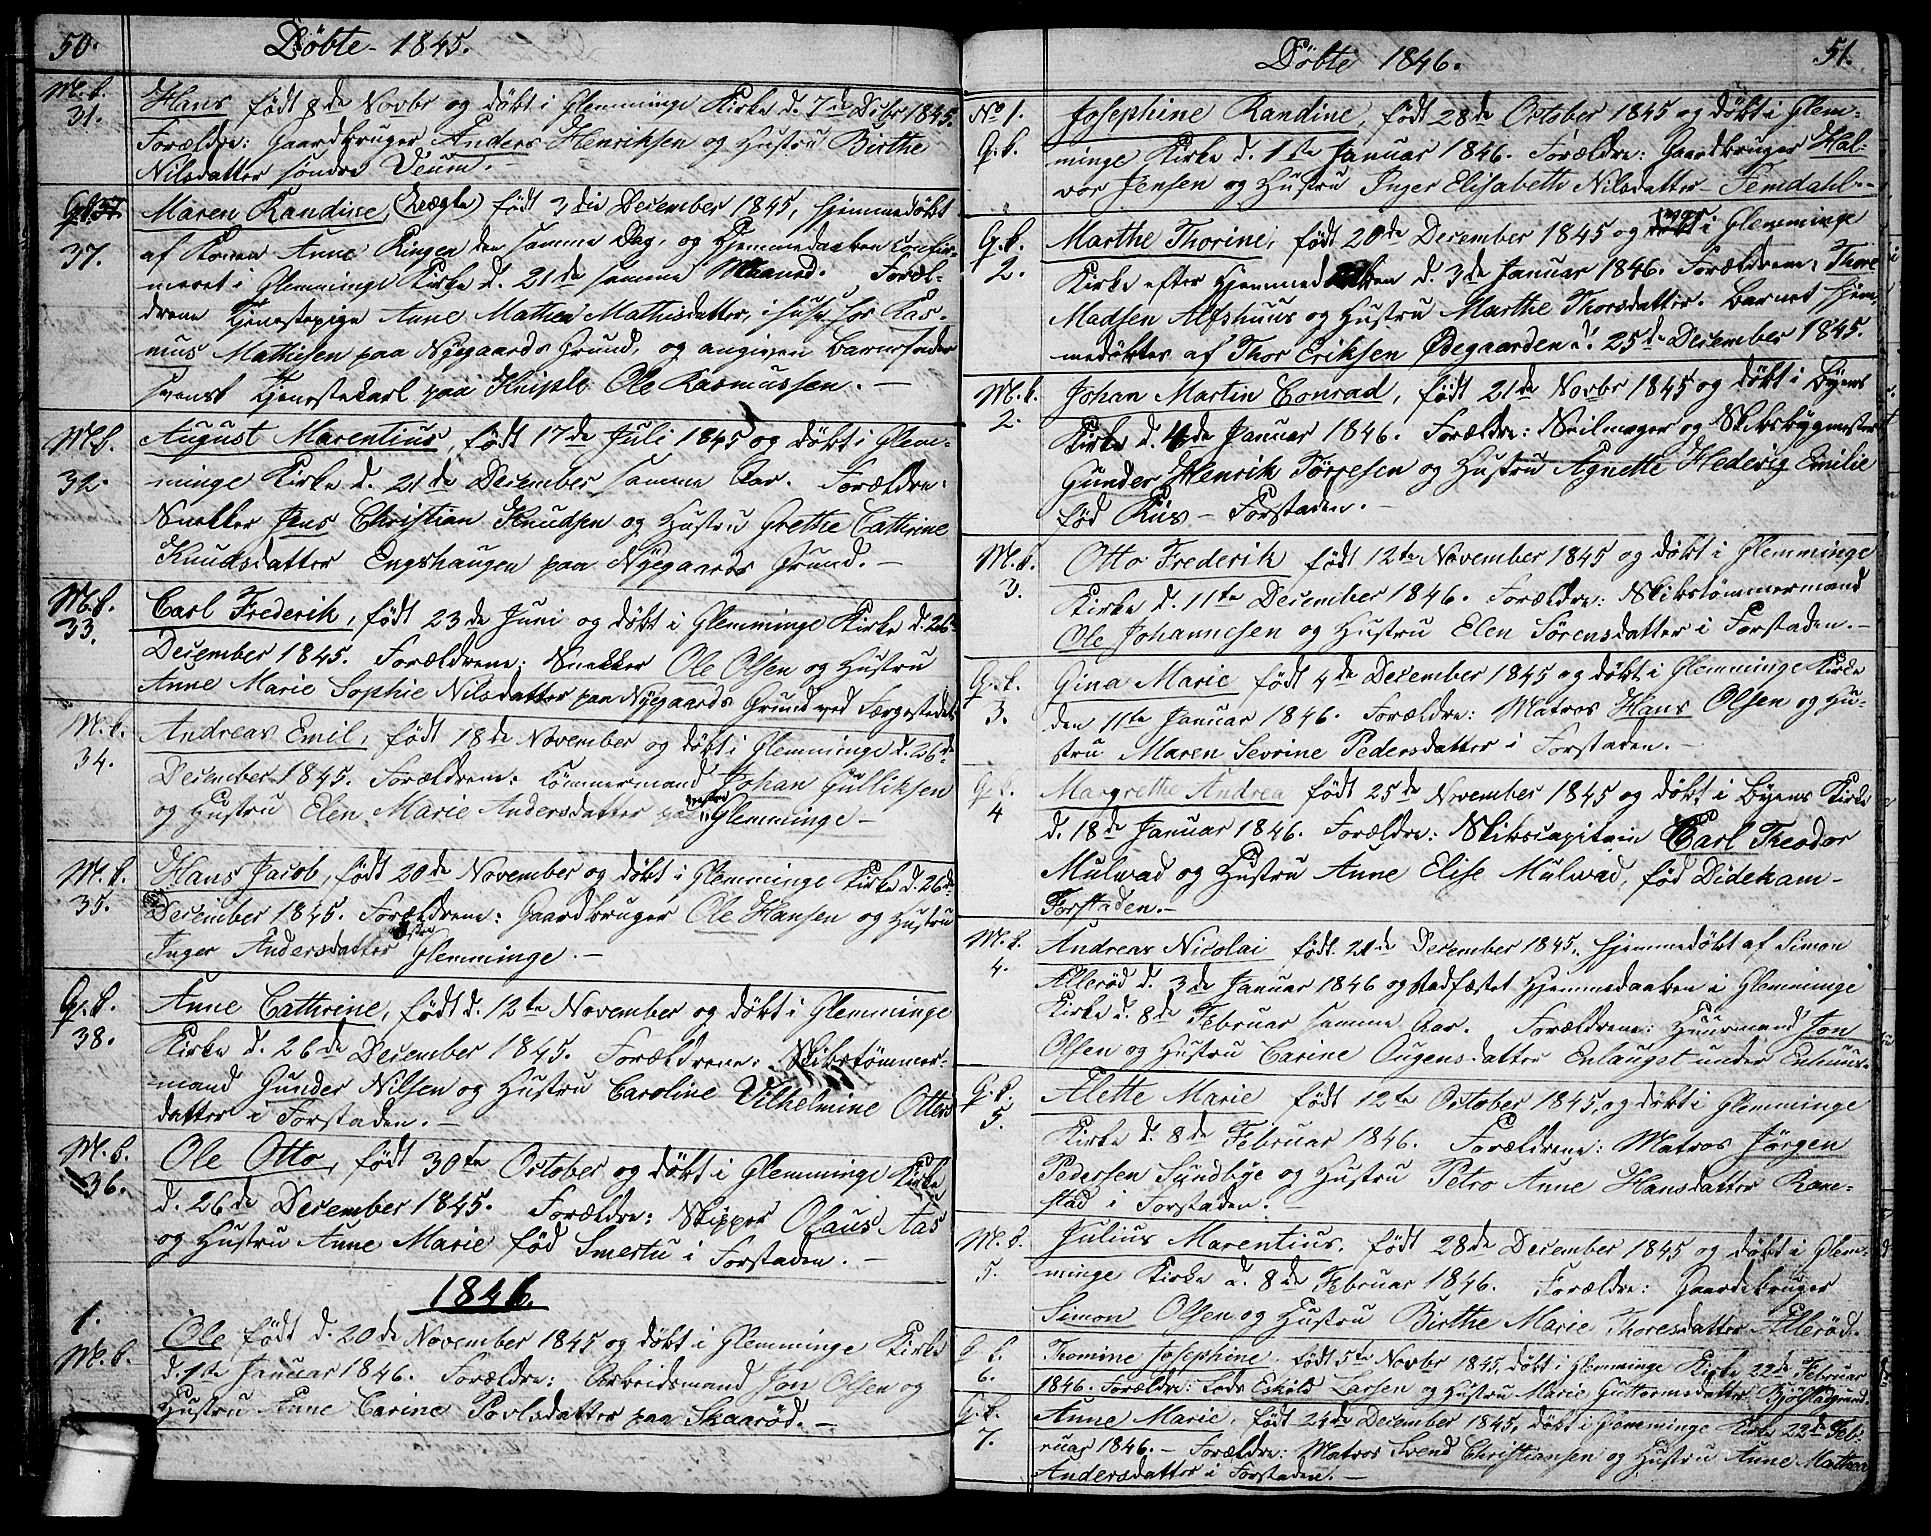 50.
Döbte 1845.
M. k.
31.
Hans født 8de Novbr og døbt i Glemminge Kirke d. 7de Dcbr 1845.
Forældre: Gaardbruger Anders Henriksen og Hustru Birthe
Nilsdatter söndre Veum.
37.
Maren Randine, (Uægte) født 3die December 1845, hjemmedøbt
af Konen Anne Ringen den samme Dag, og Hjemmedaaben confir-
meret i Glemminge Kirke d. 21de samme Maaned. Foræl-
drene Tjenestepige Anne Mathea Mathisdatter, i huse hos Ras-
mus Mathisen paa Nyegaards Grund, og angiven Barnefader
svensk Tjenestekarl paa Kniple Ole Rasmussen. —
M. k.
32.
August Marentius, født 17de Juli 1845 og døbt i Glem-
minge Kirke d. 21de December samme Aar. Forældre:
Snekker Jens Christian Knudsen og Hustru Grethe Cathrine
Knudsdatter Engshaugen paa Nyegaards Grund. —
M. k.
33.
Carl Frederik, født 23de Juni og døbt i Glemminge Kirke d. 26de
December 1845. Forældrene: Snekker Ole Olsen og Hustru
Anne Marie Sophie Nilsdatter paa Nyegaards Grund ved Færgestedet.
M. k.
34.
Andreas Emil, født 18de November og døbt i Glemminge d. 26de
December 1845. Forældrene: Tömmermand Johan Gulliksen
og Hustru Elen Marie Andersdatter paa Glemminge —
M. k.
35.
Hans Jacob, født 20de November og døbt i Glemminge Kirke d. 26de
December 1845. Forældrene: Gaardbruger Ole Hansen og Hustru
Inger Andersdatter Glemminge. —
G. k.
38.
Anne Cathrine, født d. 12te November og døbt i Glemminge
Kirke d. 26de December 1845. Forældrene: Skibstømmer-
mand Gunder Nilsen og Hustru Caroline Vilhelmine Otters
datter i Forstaden. —
M. k.
36.
Ole Otto, født 30te October og døbt i Glemminge Kirke
d. 26de December 1845. Forældre: Skipper Olaus Aas
og Hustru Anne Marie fød Smertu i Forstaden. —
1846.
1.
M. k.
Ole født d. 20de November 1845 og døbt i Glemminge Kirke
d. 1te Januar 1846. Forældre: Arbeidsmand Jon Olsen og
Hustru Anne Carine Povlsdatter paa Skaaröd. —
Döbte 1846.
51.
No 1.
G. k.
Josephine Randine, født 28de October 1845 og døbt i Glem-
minge Kirke d. 1ste Januar 1846. Forældre: Gaardbruger Hal-
vor Jensen og Hustru Inger Elisabeth Nilsdatter Femdahl —
G. k.
2.
Marthe Thorine, født 20de December 1845 og i Glemminge
Kirke efter Hjemmedaaben d. 3de Januar 1846. Forældrene: Thore
Madsen Alfshuus og Hustru Marthe Thorsdatter. Barnet hjem-
medøbtes af Thor Eriksen Ødegaarden d. 25de December 1845.
M. k.
2.
Johan Martin Conrad, født 21de Novbr 1845 og døbt i Byens
Kirke d. 4de Januar 1846. Forældre: Seilmager og Skibsbygmester
Gunder Henrik Törresen og Hustru Agnette Hedevig Emilie
fød Riis — Forstaden. —
M. k.
3.
Otto Frederik født 12te November 1845 og døbt i Glemminge
Kirke d. 11te December 1846. Forældre: Skibstömmermand
Ole Johannesen og Hustru Elen Sörensdatter i Forstaden. —
G. k.
3.
Gina Marie født 4de December 1845 og døbt i Glemminge Kirke
den 11te Januar 1846. Forældre: Matros Hans Olsen og Hu-
stru Maren Sevrine Pedersdatter i Forstaden. —
G. k.
4
Margrethe Andrea født 25de November 1845 og døbt i Byens Kirke
d. 18de Januar 1846. Forældre: Skibscapitain Carl Theodor
Mulvad og Hustru Anne Elise Mulvad, fød Didekam —
Forstaden. —
M. k.
4.
Andreas Nicolai født 21de December 1845. Hjemmedøbt af Simon
Alleröd d. 3de Januar 1846 og stadfæstet Hjemmedaaben i Glemminge
Kirke d. 8de Februar samme Aar. Forældrene: Huusmand Jon
Olsen og Hustru Carine Ougensdatter Enlauget under Enhuus.
G. k.
5.
Alette Marie født 12te October 1845, og døbt i Glemminge
Kirke d. 8de Februar 1846. Forældrene: Matros Jörgen
Pedersen Sundbye og Hustru Petro Anne Hansdatter Rane-
stad i Forstaden. —
M. k.
5.
Julius Marentius, født 28de December 1845 og døbt i Glem-
minge Kirke d. 8de Februar 1846. Forældre: Gaardebruger
Simon Olsen og Hustru Birthe Marie Thoresdatter Alleröd.
G. k.
6.
Thomine Josephine født 5te Novbr 1845, døbt i Glemminge Kirke 22de Februar
1846. Forældre: Lods Eskild Larsen og Hustru Marie Guttormsdatter
G. k.
7.
Anne Marie, født 24de December 1845, døbt i Glemminge Kirke 22de Feb-
ruar 1846. — Forældre: Matros Svend Christiansen og Hustru Anne Mathea
Andersdatter i Forstaden. —